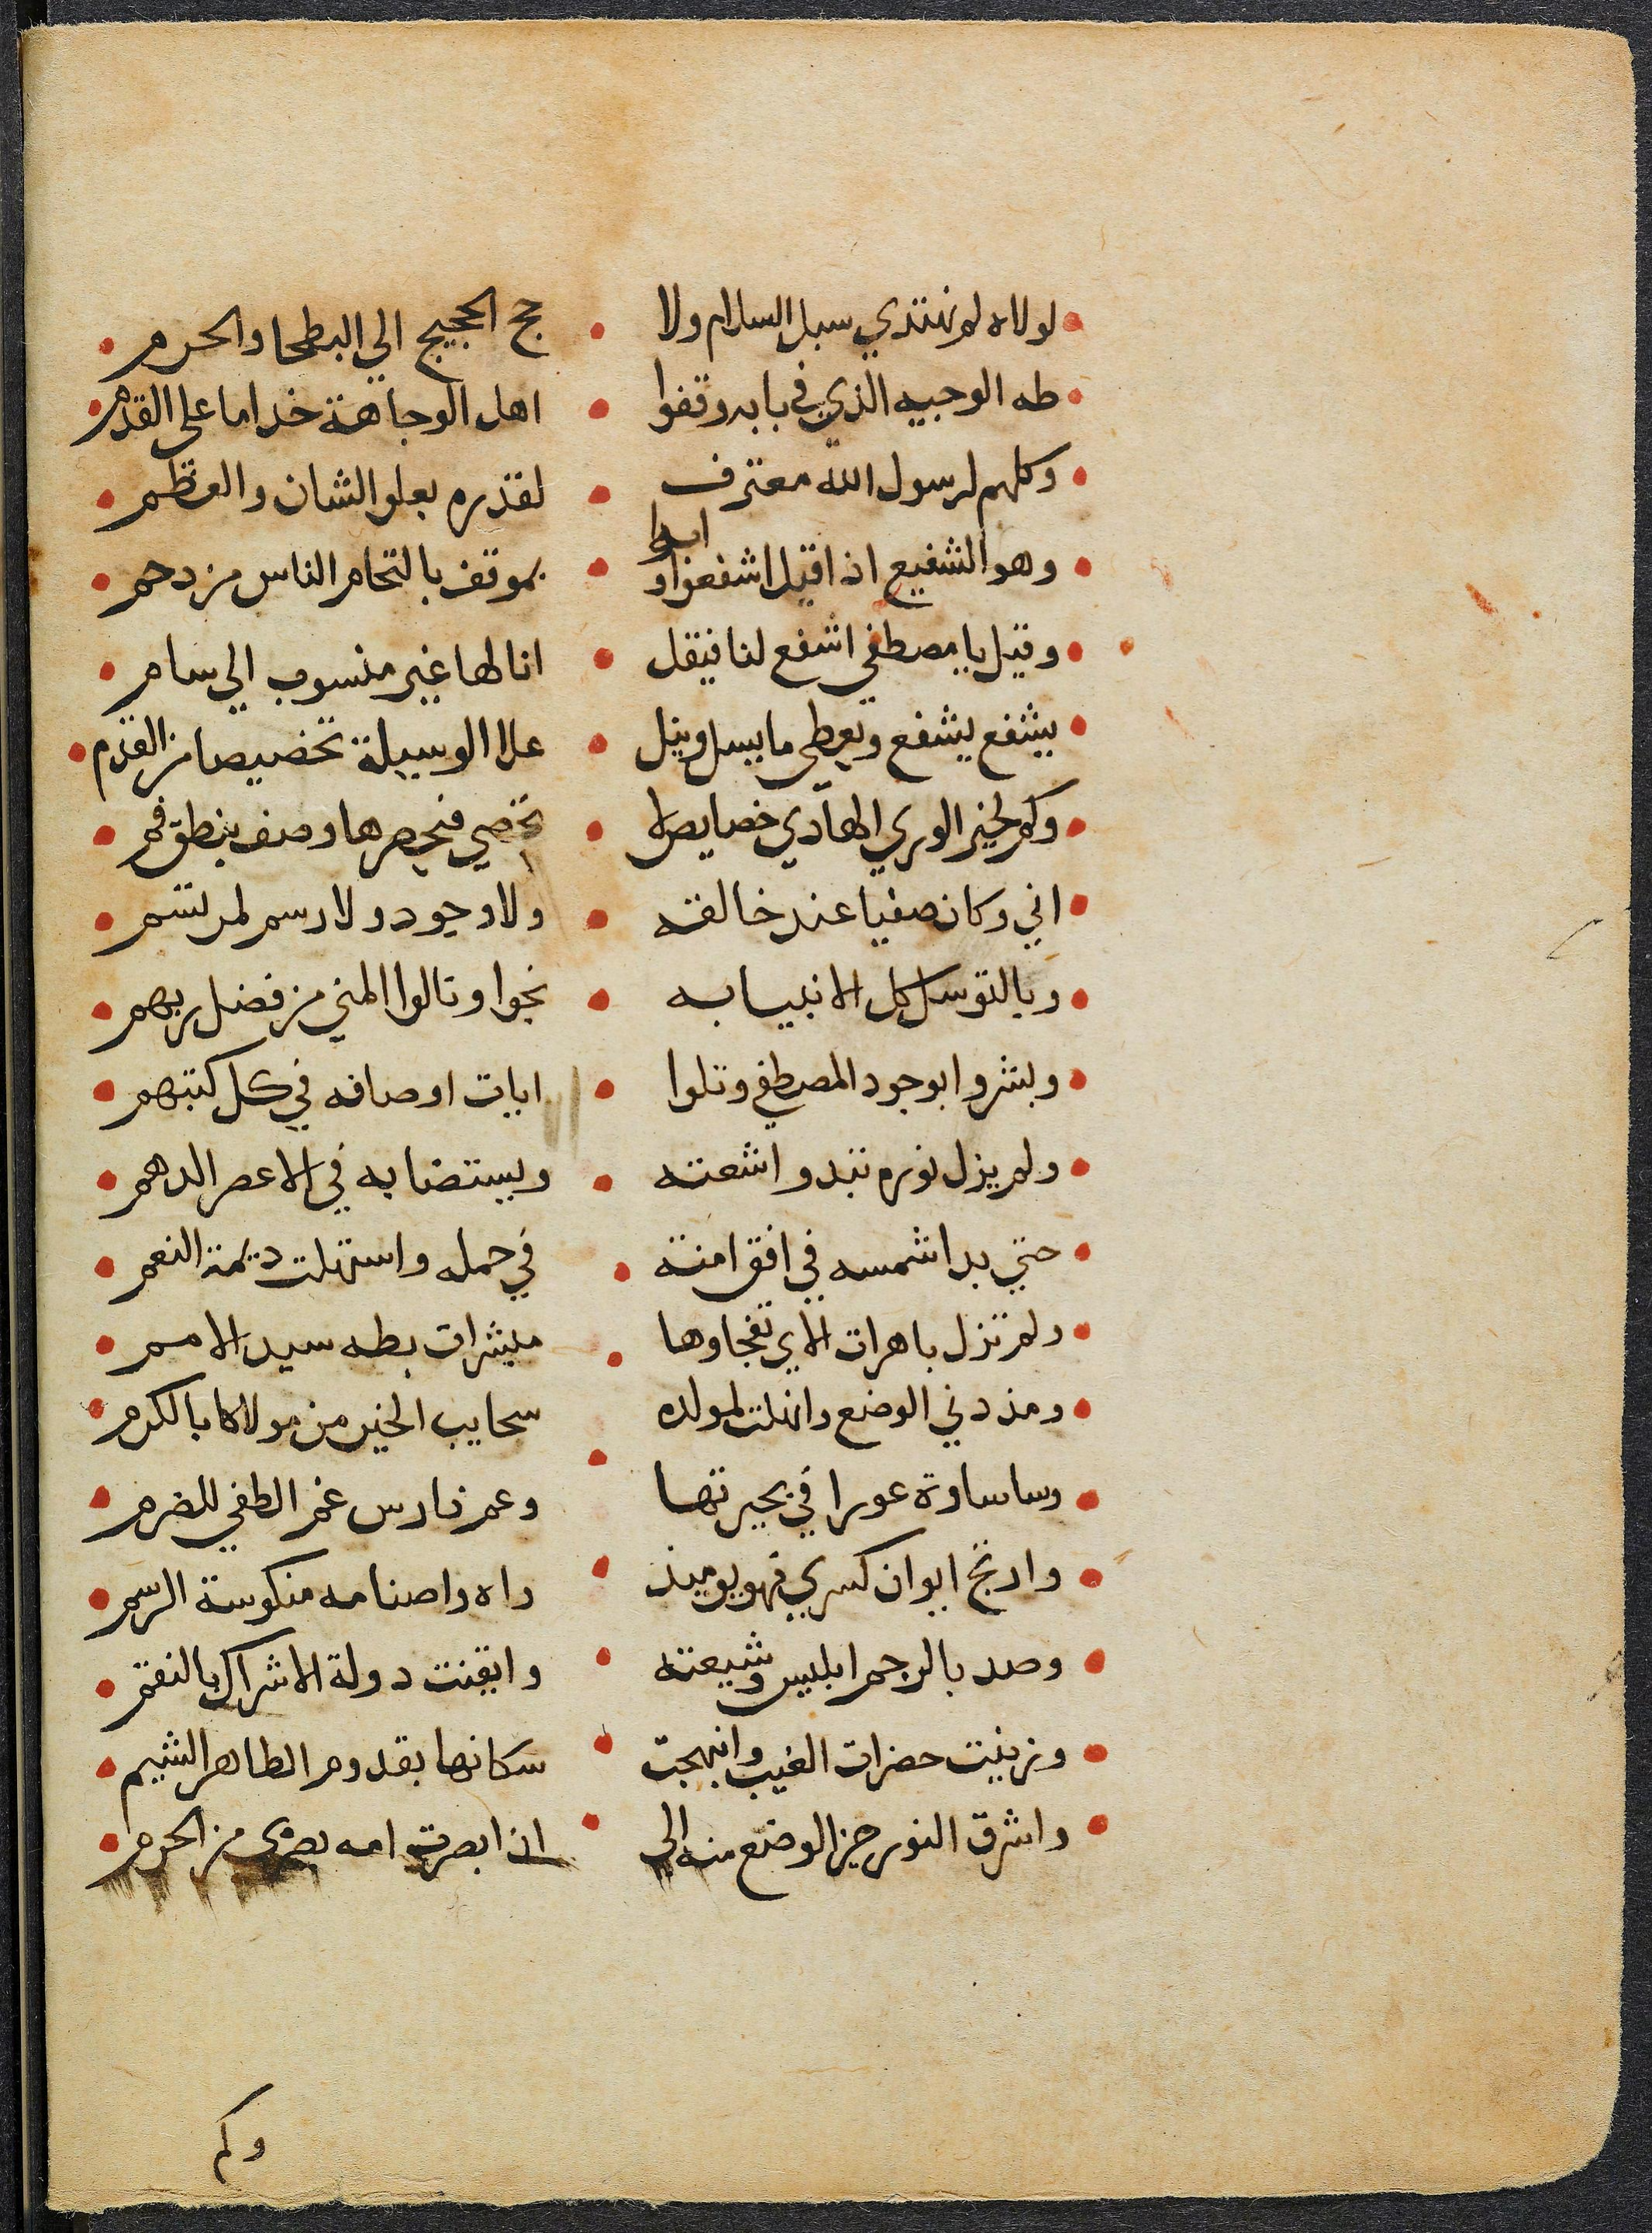 لولاه لم نهتدي سبل السلام ولا • حج الحجيج الي البطحا والحرم
طه الوجيه الذي في بابه وقفوا • اهل الوجاهة خداما علي القدم
وكلهم لرسول الله معترف • لقدره بعلو الشان والعظم
وهو الشفيع اذا قيل اشفعوا وابوا • بموقف بالتحام الناس مزدحم
وقيل يا مصطفي اشفع لنا فيقل • انا لها غير منسوب الي سام
يشفع يشفع ويعطي ما يسل وينل • علا الوسيلة تخصيصا من القدم
وكم لخير الوري الهادي خصايص لا • تحصي فيحصرها وصف بنطق فم
اني وكان صفيا عند خالقه • ولا وجود ولا رسم لمرتسم
وبالتوسل كل الانبيا به • نجوا ونالوا المني من فضل ربهم
وبشروا بوجود المصطفي وتلوا • ايات اوصافه في كل كتبهم
ولم يزل نوره تبدو اشعته • ويستضا به في الاعصر الدهم
حتي بدا شمسه في افق امنته • في حمله واستهلت ديمة النعم
ولم تزل باهرات الاي تفجاوها • مبشرات بطه سيد الامم
ومذ دني الوضع وانهلت لمولده • سحايب الخير من مولاكا بالكرم
وسا ساوة غورا في بحيرتها • وعم فارس غم الطفي للضرم
وارتج ايوان كسري فهو يوميذ • واه واصنامه منكوسة الرسم
وصد بالرجم ابليس وشيعته • وايقنت دولة الاشراك بالنقم
وزينت حضرات الغيب وابتهجت • سكانها بقدوم الطاهر الشيم
واشرق النور حين الوضع منه الي • ان ابصرت امه بصري من الحرم
وكم